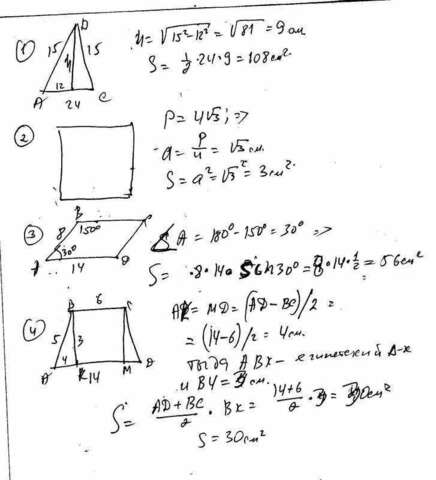 ① B 15 15 h 12 A 24 C
h = √15²-12² = √81 = 9 см
S = 1/2 · 24 · 9 = 108 см²
②
P = 4√3; =>
a = P/4 = √3 см.
S = a² = √3² = 3 см².
③ B C 8 150° 30° A 14 D
A = 180° - 150° = 30° =>
S = 8 · 14 · sin 30° = 8 · 14 · 1/2 = 56 см²
④ B 6 C 5 3 A 4 K 14 M D
AK = MD = (AD - BC)/2 =
= (14-6)/2 = 4 см.
тогда ABK - египетский Δ-к
и BK = 3 см.
S = AD+BC/2 · BK = 14+6/2 · 3 = 30 см²
S = 30 см²